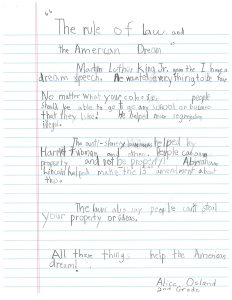 The rule of law and
the American Dream
Martin Luther King Jr. gave the I have a
dream speech. He wanted everything to be fair
No matter what your color is people
should be able to go to any school or
that they like. He helped more segregation
The anti-slavery helped by
Harriet Tubman and other. People can own
property and not be property! Abraham
Lincoln helped make the 13 amendment about
this.
The laws also say people can't steal
your property or ideas.
All these things help the American
dream!
Alice Osland
2nd Grade